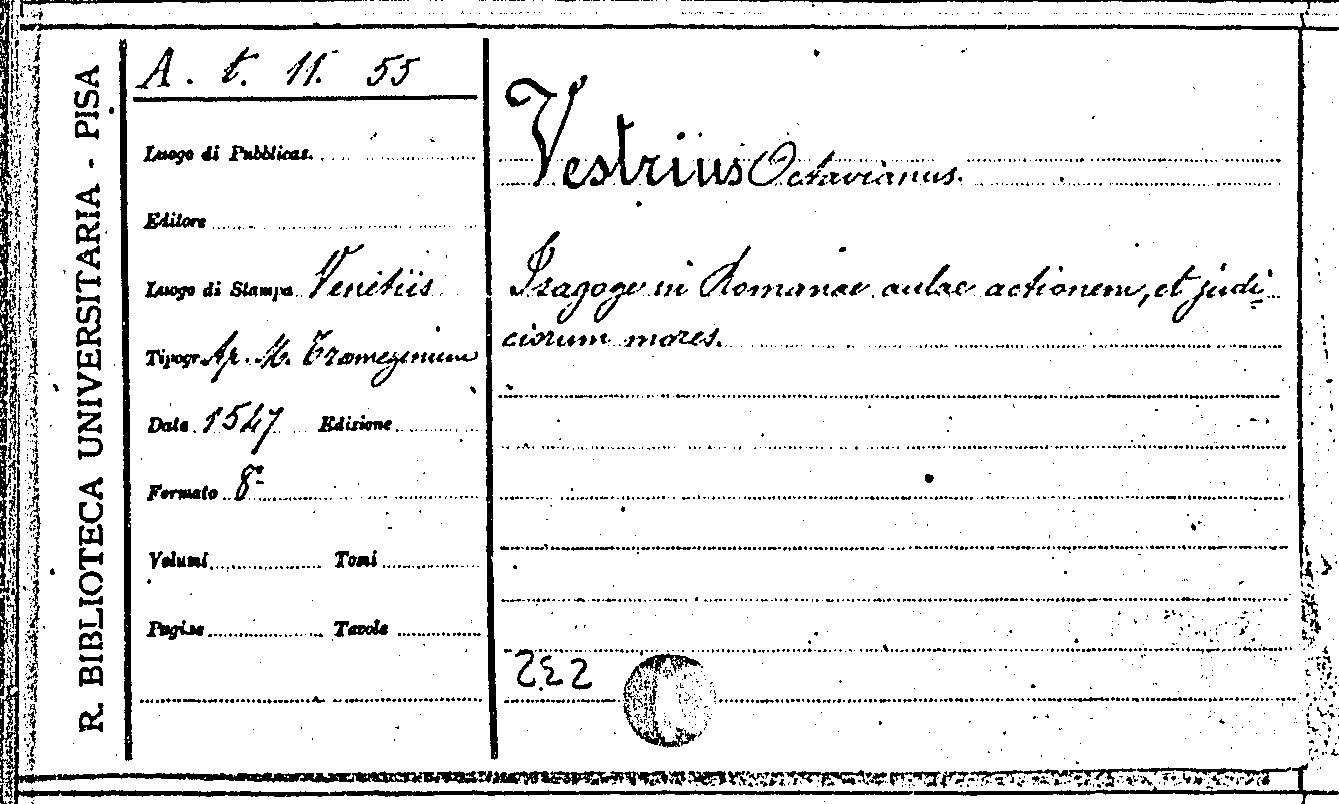 R. BIBLIOTECA UNIVERSITARIA - PISA
A. t. 11. 55
Luogo di Pubblicaz.
Editore
Luogo di Stampa Venetiis
Tipogr. Ap. M. Tramezinium
Data 1547 Edizione
Formato 8°
Volumi Tomi
Pagine Tavole
Vestrius Octavianus.
Isagoge in Romanae aulae actionem, et judi-
ciorum mores.